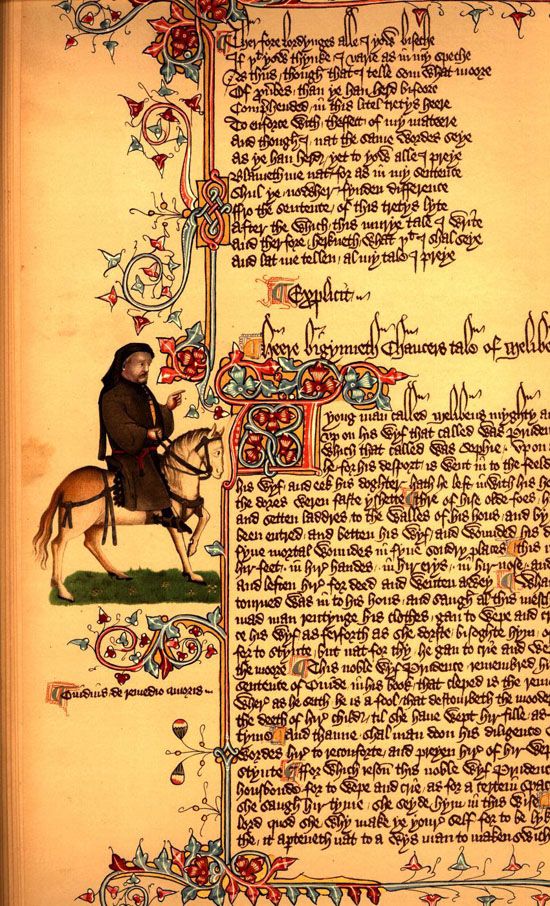 Therfore lordynges alle I yow biseche
If þt yow thynke I varie as in my speche
As thus though that I telle som what moore
Of prouerbes than ye han herd bifore
Comprehended in this litel tretys heere
To enforce with theffect of my mateere
And though I nat the same wordes seye
As ye han herd yet to yow alle I preye
Blameth me nat for as in my sentence
Shul ye nowher fynden difference
ffro the sentence of this tretys lyte
After the which this murye tale I write
And therfore herkneth what þt I shal seye
And lat me tellen al my tale I preye
Explicit
Heere bigynneth Chaucers tale of Melibe
A yong man called Melibeus myghty an
vp on his wyf that called was Pruden
which that called was Sophie vpon
he for his desport is went in to the feeld
his wyf and eek his doghter hath he left in with his ho
the dores weren faste yshette thre of hise olde foes h
and setten laddres to the walles of his hous and by
been entred and betten his wyf and wounded his d
fyue mortal woundes in fyue sondry places this i
hir feet in hir handes in hir erys in hir nose and
and leften hir for deed and wenten awey Whan
tourned was in to his hous and saugh al this mesch
mad man rentynge his clothes gan to wepe and cr
ce his wyf as ferforth as she dorste bisoghte hym o
for to stynte but nat for thy he gan to crie and we
the moore This noble wyf Prudence remembred hi
sentence of Ouide in his book that cleped is the reme
wher as he seith he is a fool that destourbeth the mooder
the deeth of hir child til she haue wept hir fille as
tyme and thanne shal man doon his diligence
wordes hir to reconforte and preyen hir of hir we
stynte ffor which reson this noble wyf Pruden
housbonde for to wepe and crie as for a certein spac
she saugh hir tyme she seyde hym in this wise
lord quod she why make ye your self for to be lyk
the it aperteneth nat to a wys man to maken swich
Ouidius de remedio amoris